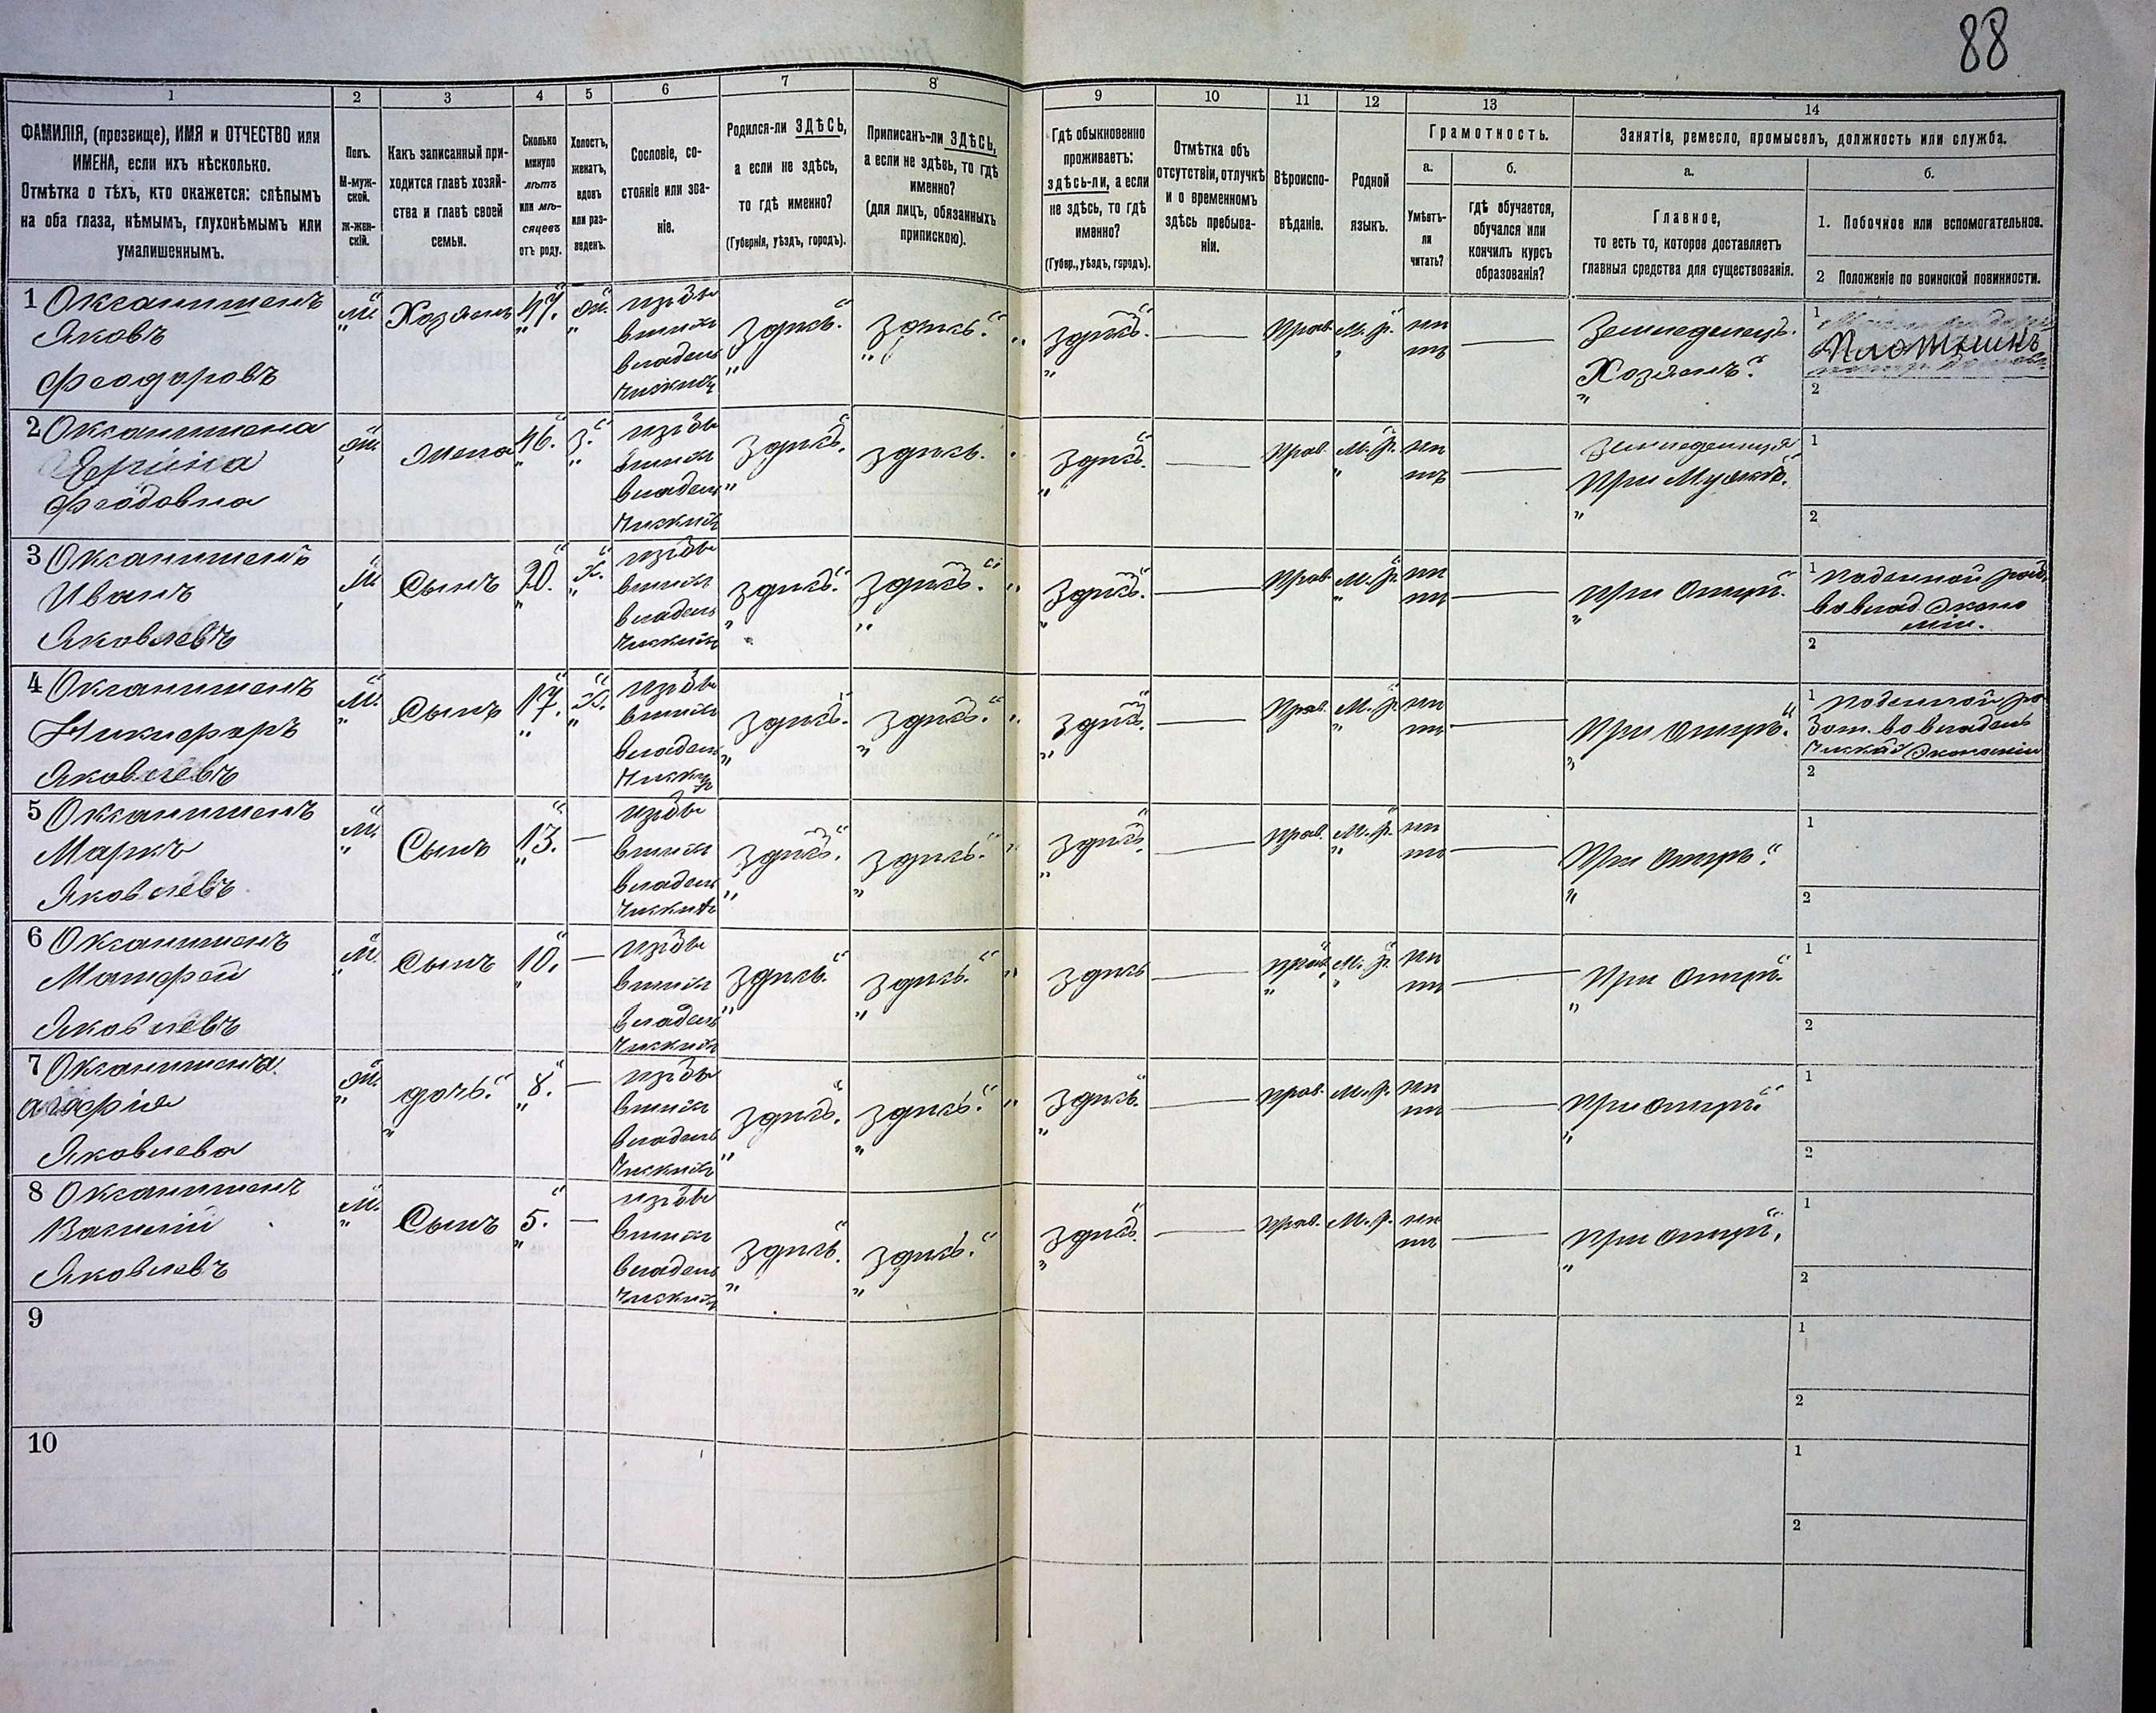 88
1 2 3 4 5 6 7 8 9 10 11 12 13 14
ФАМИЛІЯ, (прозвище), ИМЯ и ОТЧЕСТВО или
ИМЕНА, если ихъ нѣсколько.
Отмѣтка о тѣхъ, кто окажется: слѣпымъ
на оба глаза, нѣмымъ, глухонѣмымъ или
умалишеннымъ.
Полъ.
М-муж-
ской.
ж-жен-
скій.
Какъ записанный при-
ходится главѣ хозяй-
ства и главѣ своей
семьи.
Сколько
минуло
лѣтъ
или мѣ-
сяцевъ
отъ роду.
Холостъ,
женатъ,
вдовъ
или раз-
веденъ.
Сословіе, со-
стояніе или зва-
ніе.
Родился-ли ЗДѢСЬ,
а если не здѣсь,
то гдѣ именно?
(Губернія, уѣздъ, городъ).
Приписанъ-ли ЗДѢСЬ,
а если не здѣсь, то гдѣ
именно?
(для лицъ, обязанныхъ
припискою).
Гдѣ обыкновенно
проживаетъ:
здѣсь-ли, а если
не здѣсь, то гдѣ
именно?
(Губер., уѣздъ, городъ).
Отмѣтка объ
отсутствіи, отлучкѣ
и о временномъ
здѣсь пребыва-
ніи.
Вѣроиспо-
вѣданіе.
Родной
языкъ.
Грамотность.
а.
Умѣетъ-
ли
читать?
б.
гдѣ обучается,
обучался или
кончилъ курсъ
образованія?
Занятія, ремесло, промыселъ, должность или служба.
а.
Главное,
то есть то, которое доставляетъ
главныя средства для существованія.
б.
1. Побочное или вспомогательное.
2 Положеніе по воинской повинности.
1 Оксанишенъ
Яковъ
Феодоровъ
м Хозяинъ 47. ж.
изъ бы
вшихъ
владель
ческихъ
здись. здись. здись. Прав. М. р. не
тъ
Земледелецъ.
Хозяинъ.
1
Плотникъ
2
2 Оксанишена
Феодовна
ж. жена 46. з.
изъ бы
вшихъ
владель
ческихъ
здись. здись. здись. Прав. М. р. не
тъ
При Мужѣ.
1
2
3 Оксанишенъ
Иванъ
Яковлевъ
м Сынъ 20. х.
изъ бы
вшихъ
владель
ческихъ
здись. здись. здись. Прав. М. р. не
тъ
При Отцѣ.
1 поденной раб.
во влад Эконо
міи.
2
4 Оксанишенъ
Никифоръ
Яковлевъ
м. Сынъ 17. х.
изъ бы
вшихъ
владель
ческихъ
здись. здись. здись. Прав. М. р. не
тъ
При Отцѣ.
1 поденной ра
бот. во владель
ческой Экономіи
2
5 Оксанишенъ
Маркъ
Яковлевъ
м. Сынъ 13. —
изъ бы
вшихъ
владель
ческихъ
здись. здись. здись. Прав. М. р. не
тъ
При Отцѣ.
1
2
6 Оксанишенъ
Матфей
Яковлевъ
м. Сынъ 10. —
изъ бы
вшихъ
владель
ческихъ
здись. здись. здись прав. М. р. не
тъ
При Отцѣ.
1
2
7 Оксанишена
Агафія
Яковлева
ж. дочь. 8. —
изъ бы
вшихъ
владель
ческихъ
здись. здись. здись. прав. М. р. не
тъ
При Отцѣ.
1
2
8 Оксанишенъ
Василій
Яковлевъ
м. Сынъ 5. —
изъ бы
вшихъ
владель
ческихъ
здись. здись. здись. прав. М. р. не
тъ
При Отцѣ.
1
2
9
1
2
10
1
2